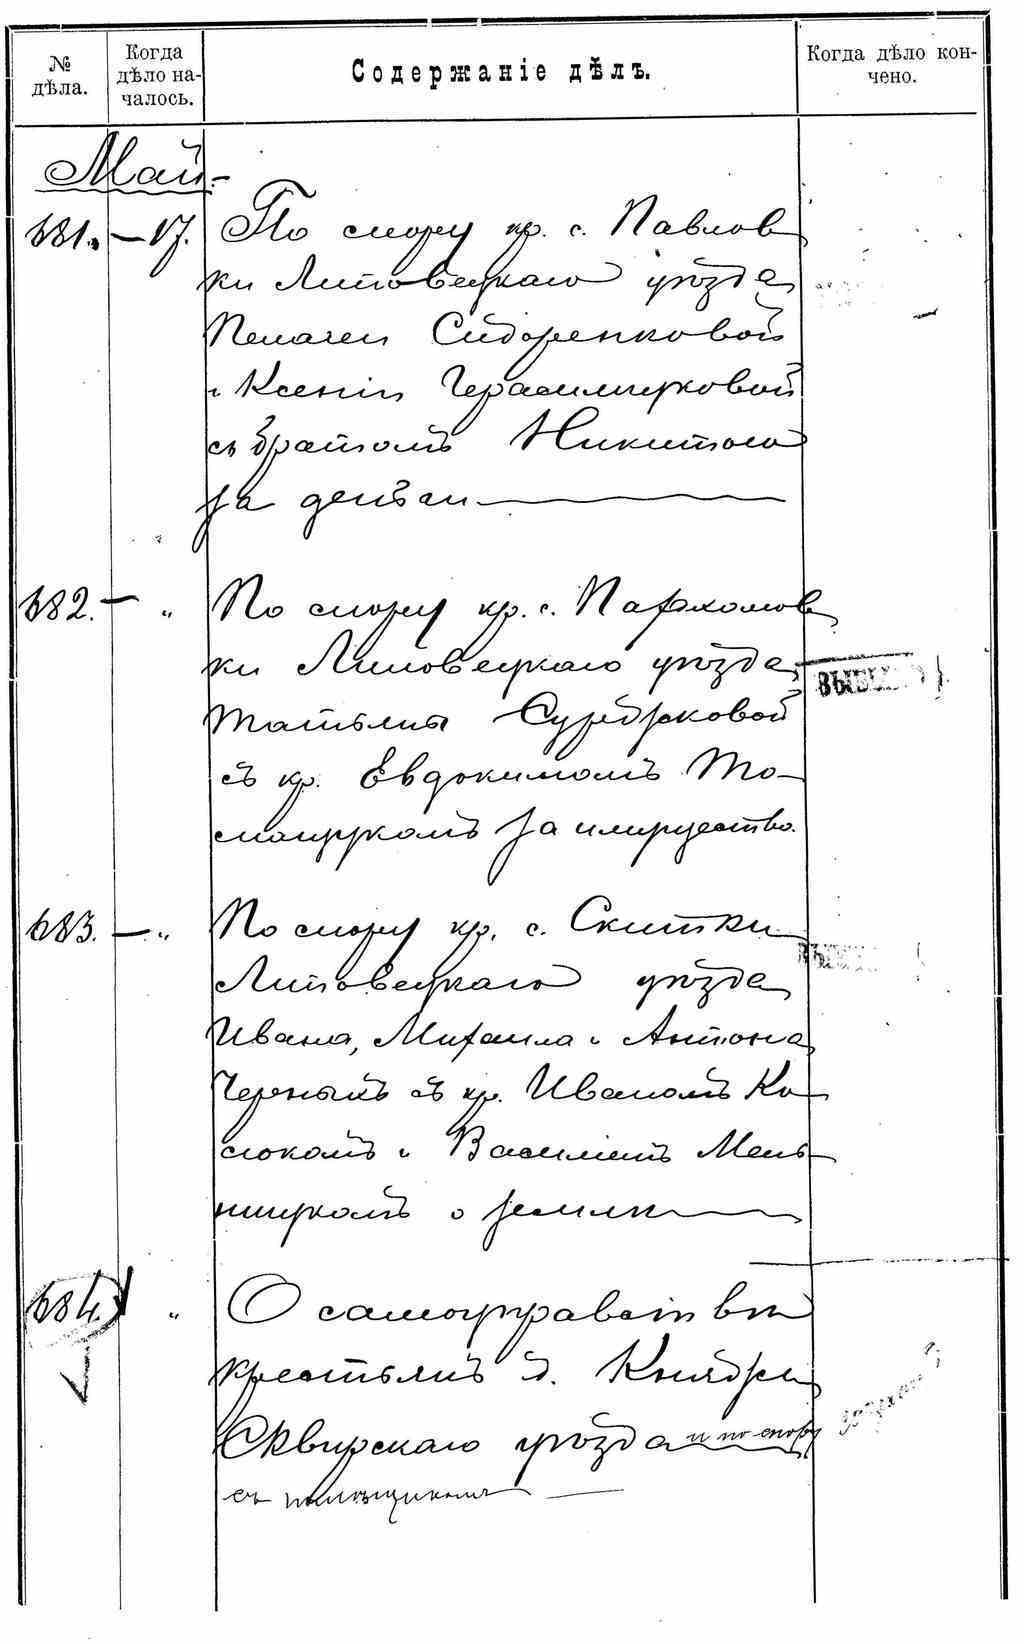 № дѣла.
Когда дѣло началось.
Содержаніе дѣлъ.
Когда дѣло кончено.
Май.
681. — 17. По спору кр. с. Павлов
ки Липовецкаго уѣзда
Пелагеи Сидоренковой
и Ксеніи Герасимчуковой
съ братомъ Никитою
за деньги
682. — " По спору кр. с. Пархомов
ки Липовецкаго уѣзда
Татьяны
съ кр. Евдокимомъ То-
за имущество.
683. — " По спору кр. с. Скитки
Липовецкаго уѣзда
Ивана, Михаила и Антона
Черныхъ съ кр. Иваномъ Ко
и Василіемъ Мель
ничукомъ о землѣ
684. " О самоуправствѣ
крестьянъ д.
Сквирскаго уѣзда и по спору
съ помѣщикомъ